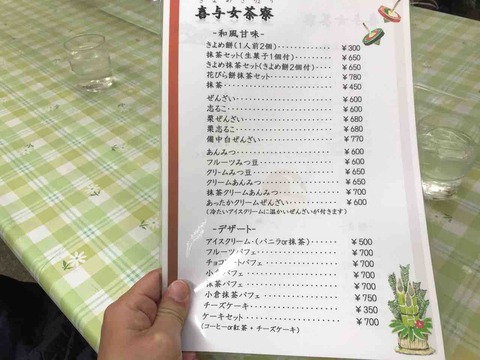 きよめさりょう
喜与女茶寮
-和風甘味-
きよめ餅(1人前2個)・・・・・・・・・・¥300
抹茶セット(生菓子1個付)・・・・・・¥650
きよめ抹茶セット(きよめ餅2個付)・・・¥650
花びら餅抹茶セット・・・・・・・・・・¥780
抹茶・・・・・・・・・・・・・・・・・・¥450
ぜんざい・・・・・・・・・・・・・・・・¥600
志るこ・・・・・・・・・・・・・・・・・¥600
栗ぜんざい・・・・・・・・・・・・・・・¥680
栗志るこ・・・・・・・・・・・・・・・・¥680
備中白ぜんざい・・・・・・・・・・・・・¥770
あんみつ・・・・・・・・・・・・・・・・¥600
フルーツみつ豆・・・・・・・・・・・・・¥600
クリームみつ豆・・・・・・・・・・・・・¥650
クリームあんみつ・・・・・・・・・・・・¥650
抹茶クリームあんみつ・・・・・・・・・・¥700
あったかクリームぜんざい・・・・・・・・¥600
(冷たいアイスクリームに温かいぜんざいが付きます)
-デザート-
アイスクリーム・(バニラor抹茶)・・・・・¥500
フルーツパフェ・・・・・・・・・・・・・¥700
チョコレートパフェ・・・・・・・・・・・¥700
小倉パフェ・・・・・・・・・・・・・・・¥700
抹茶パフェ・・・・・・・・・・・・・・・¥700
小倉抹茶パフェ・・・・・・・・・・・・・¥750
チーズケーキ・・・・・・・・・・・・・・¥350
ケーキセット・・・・・・・・・・・・・・¥700
(コーヒーor紅茶 + チーズケーキ)